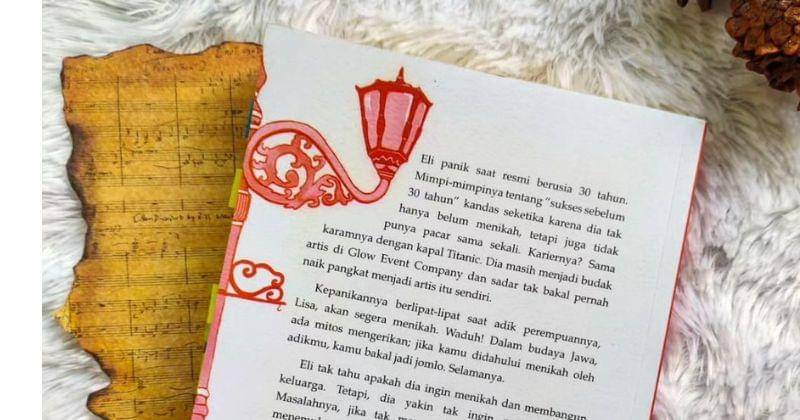 Eli panik saat resmi berusia 30 tahun.
Mimpi-mimpinya tentang "sukses sebelum
30 tahun" kandas seketika karena dia tak
hanya belum menikah, tetapi juga tidak
punya pacar sama sekali. Kariernya? Sama
karamnya dengan kapal Titanic. Dia masih menjadi budak
artis di Glow Event Company dan sadar tak bakal pernah
naik pangkat menjadi artis itu sendiri.
Kepanikannya berlipat-lipat saat adik perempuannya,
Lisa, akan segera menikah. Waduh! Dalam budaya Jawa,
ada mitos mengerikan; jika kamu didahului menikah oleh
adikmu, kamu bakal jadi jomlo. Selamanya.
Eli tak tahu apakah dia ingin menikah dan membangun
keluarga. Tetapi, dia yakin tak ingin
Masalahnya, jika tak